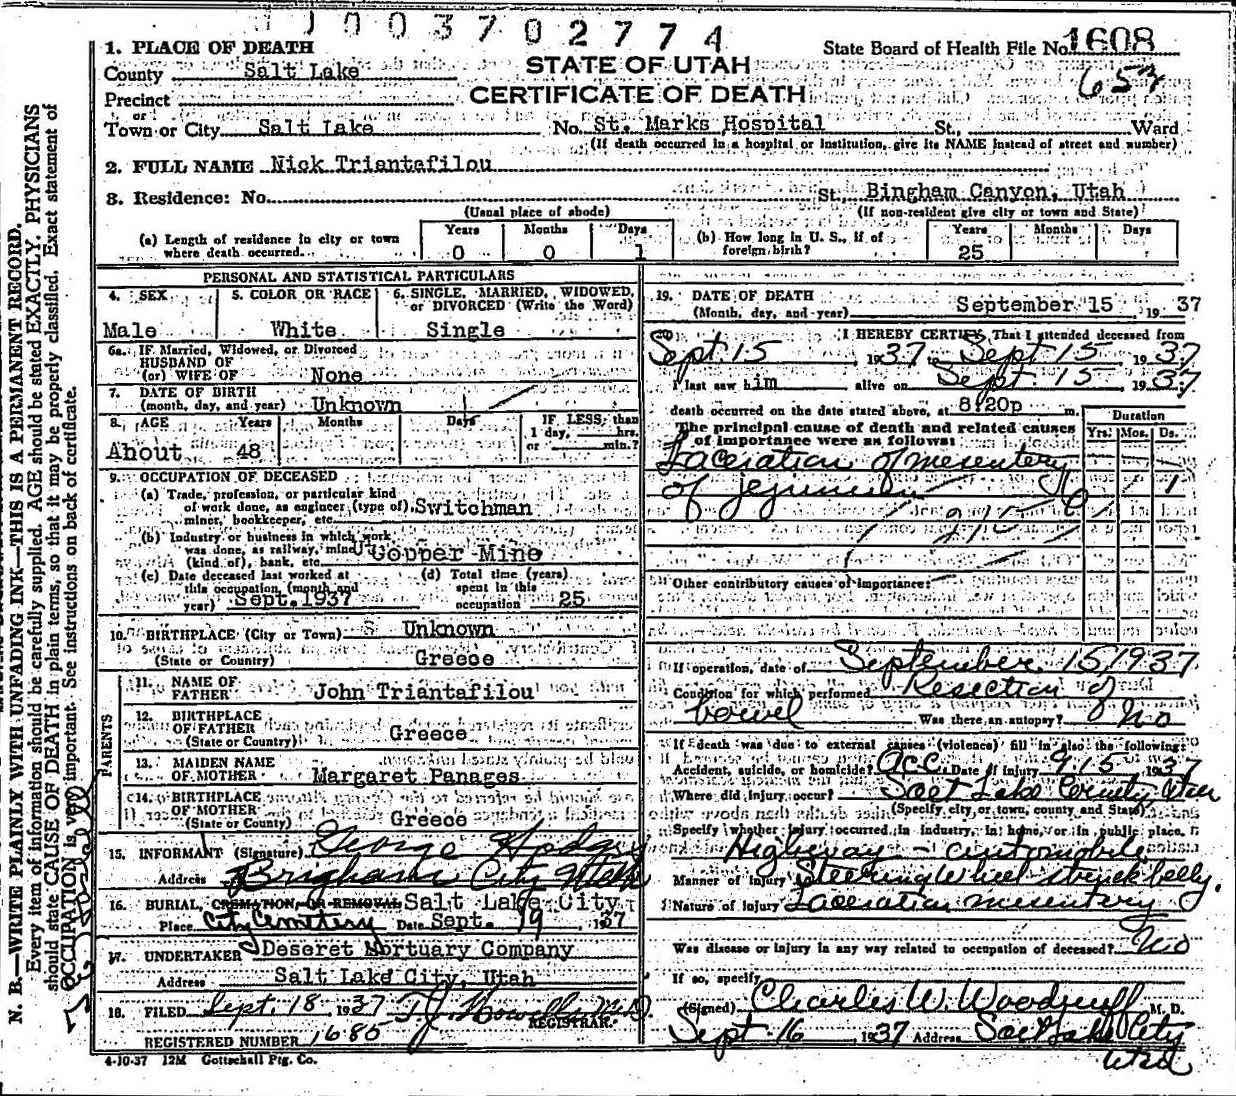 1003702774
State Board of Health File No. 1608
653
STATE OF UTAH
CERTIFICATE OF DEATH
1. PLACE OF DEATH
County Salt Lake
Precinct
or
Town or City Salt Lake No. St. Marks Hospital St., Ward
(If death occurred in a hospital or institution, give its NAME instead of street and number)
2. FULL NAME Nick Triantafilou
3. Residence: No. St. Bingham Canyon, Utah
(Usual place of abode) (If non-resident give city or town and State)
(a) Length of residence in city or town where death occurred Years 0 Months 0 Days 1
(b) How long in U. S., if of foreign birth? Years 25 Months Days
PERSONAL AND STATISTICAL PARTICULARS
4. SEX Male
5. COLOR OR RACE White
6. SINGLE, MARRIED, WIDOWED, or DIVORCED (Write the Word) Single
6a. IF Married, Widowed, or Divorced
HUSBAND OF
(or) WIFE OF None
7. DATE OF BIRTH
(month, day, and year) Unknown
8. AGE Years Months Days IF LESS than 1 day, hrs. or min.?
About 48
9. OCCUPATION OF DECEASED
(a) Trade, profession, or particular kind
of work done, as engineer (type of),
miner, bookkeeper, etc. Switchman
(b) Industry or business in which work
was done, as railway, mine
(kind of), bank, etc. Copper Mine
(c) Date deceased last worked at
this occupation, (month and
year) Sept. 1937
(d) Total time (years)
spent in this
occupation 25
10. BIRTHPLACE (City or Town) Unknown
(State or Country) Greece
PARENTS
11. NAME OF
FATHER John Triantafilou
12. BIRTHPLACE
OF FATHER
(State or Country) Greece
13. MAIDEN NAME
OF MOTHER Margaret Panages
14. BIRTHPLACE
OF MOTHER
(State or Country) Greece
15. INFORMANT (Signature) George
Address Brigham City Utah
16. BURIAL, CREMATION, OR REMOVAL Salt Lake City
Place City Cemetery Date Sept. 19, 1937
17. UNDERTAKER Deseret Mortuary Company
Address Salt Lake City, Utah
18. FILED Sept. 18, 1937 T.J. Howells M.D.
REGISTRAR.
REGISTERED NUMBER 1685
4-10-37 12M Gottschall Ptg. Co.
19. DATE OF DEATH
(Month, day, and year) September 15 1937
20. I HEREBY CERTIFY, That I attended deceased from
Sept 15 1937 to Sept 15 1937
I last saw him alive on Sept. 15, 1937
death occurred on the date stated above, at 8:20p m.
The principal cause of death and related causes
of importance were as follows:
Duration
Yrs. Mos. Ds.
Laceration of mesentery
of jejunum 1
210
Other contributory causes of importance:
If operation, date of September 15 1937
Condition for which performed Resection of
bowel Was there an autopsy? No
If death was due to external causes (violence) fill in also the following:
Accident, suicide, or homicide? Acc. Date of injury 9-15 1937
Where did injury occur? Salt Lake County Utah
(Specify city, or town, county and State)
Specify whether injury occurred in industry, in home, or in public place.
Highway - automobile
Manner of injury Steering Wheel struck belly.
Nature of injury Laceration mesentery
Was disease or injury in any way related to occupation of deceased? No
If so, specify
(Signed) Charles W. Woodruff M. D.
Sept 16, 1937 Address Salt Lake City
Utah
N. B.—WRITE PLAINLY WITH UNFADING INK—THIS IS A PERMANENT RECORD.
Every item of information should be carefully supplied. AGE should be stated EXACTLY. PHYSICIANS
should state CAUSE OF DEATH in plain terms, so that it may be properly classified. Exact statement of
OCCUPATION is very important. See instructions on back of certificate.